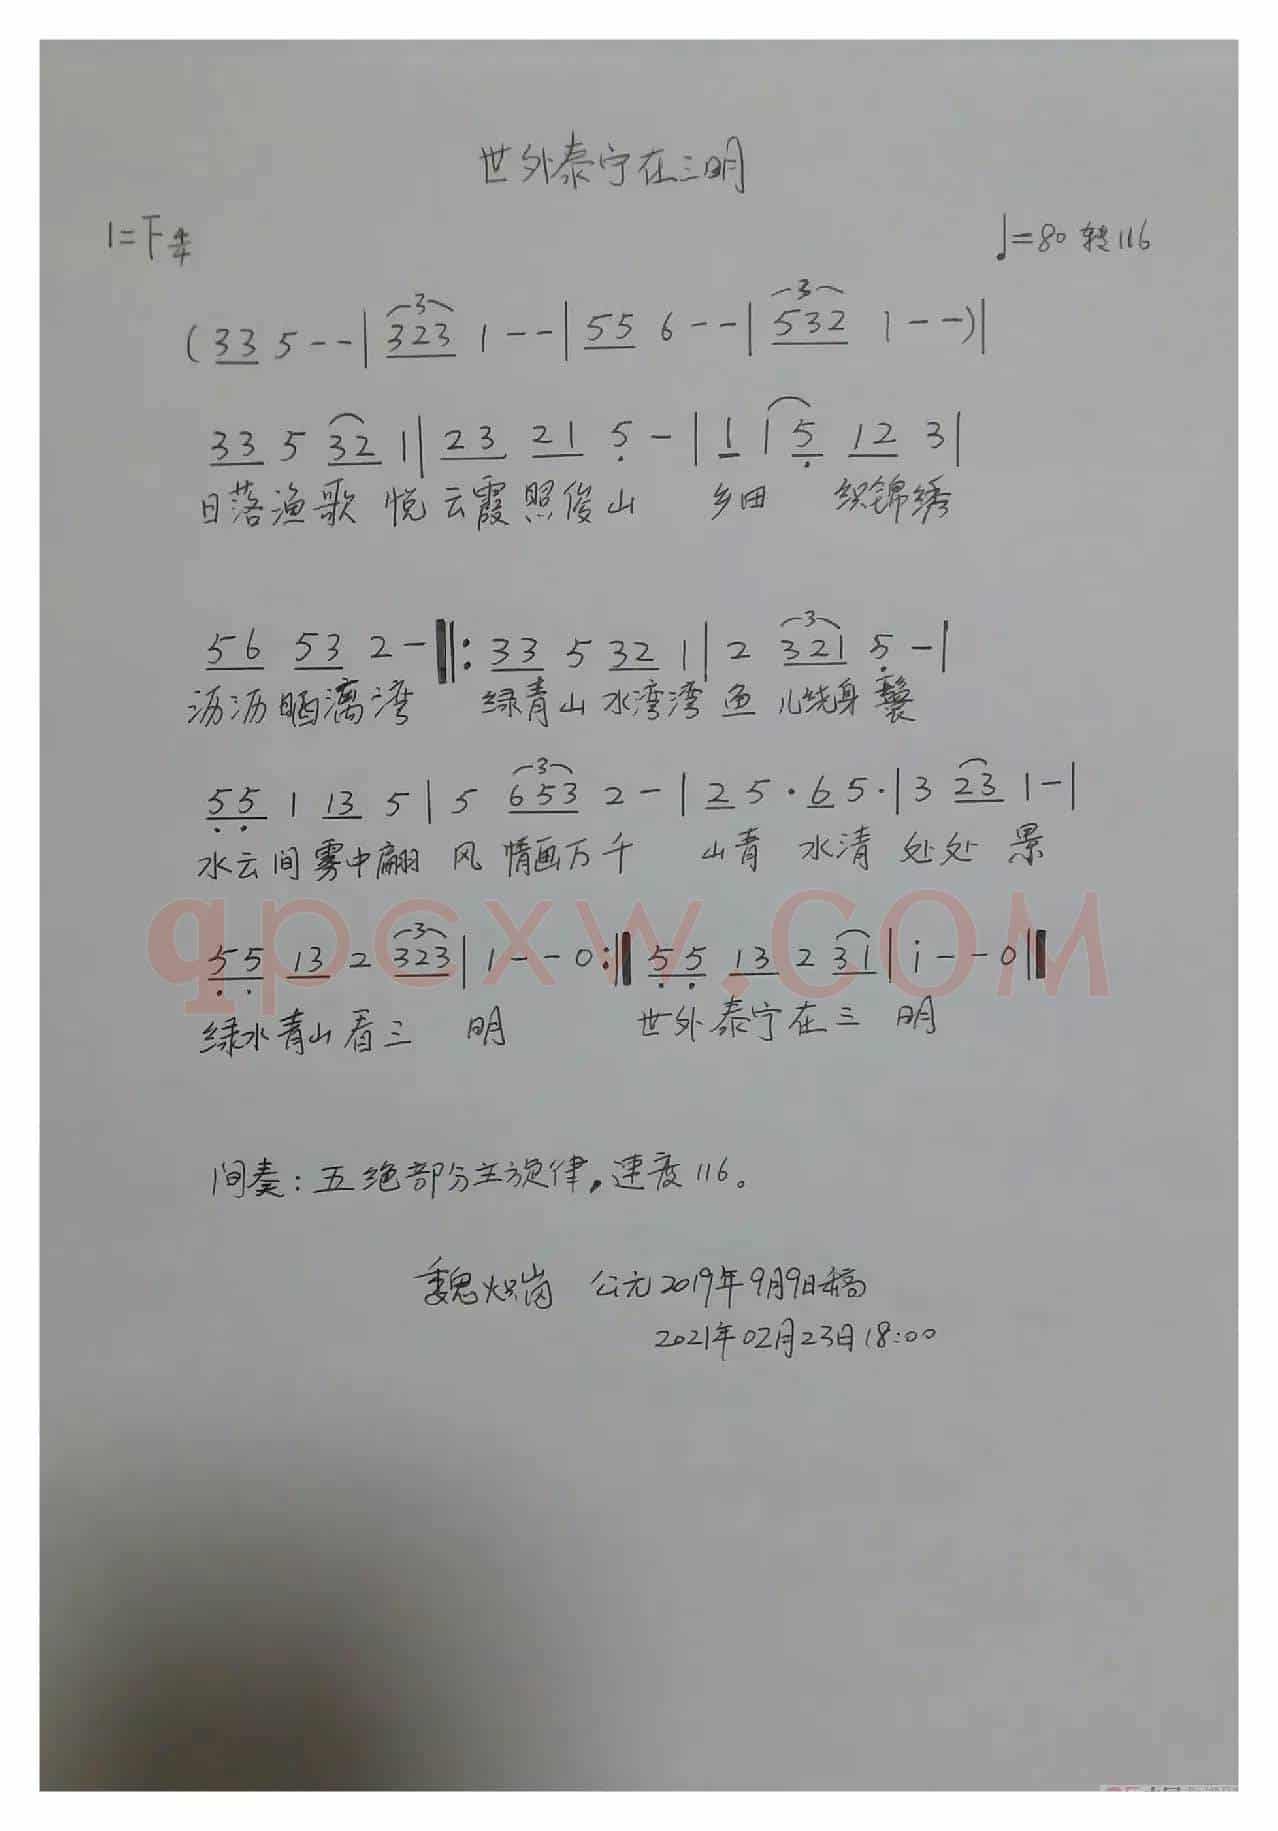 世外泰宁在三明
1=F 4/4 ♩=80 转116
(33 5--|323 1--|55 6--|532 1--)|
33 5 32 1|23 21 5-|1 1 5 12 3|
日落渔歌 悦 云霞照俊山 乡田 织锦绣
56 53 2-‖: 33 5 32 1|2 321 5-|
沥沥晒漓湾 绿青山水湾湾 鱼 儿绕身
55 1 13 5|5 653 2-|25·65·|3 23 1-|
水云间雾中翩 风 情画万千 山青 水清 处处 景
qpcxw.COM
55 13 2 323|1--0:‖ 55 13 2 31|i--0‖
绿水青山看三 明 世外泰宁在三 明
间奏:五绝部分主旋律。速度116。
魏炽岗 公元2019年9月9日稿
2021年02月23日18:00